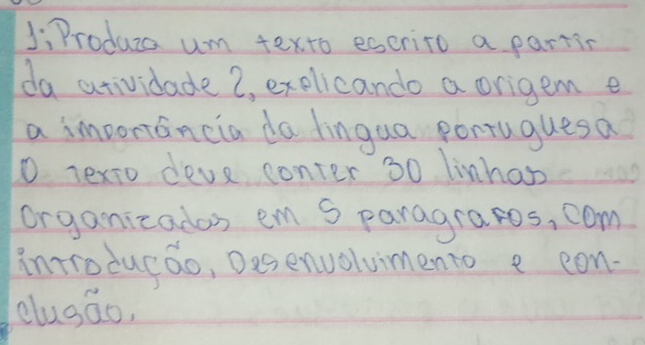 1; Produza um texto escrito a partir
da atividade 2, explicando a origem e
a importância da língua portuguesa
O texto deve conter 30 linhas
organizadas em 5 paragrafos, com
introdução, Desenvolvimento e con-
clusão.